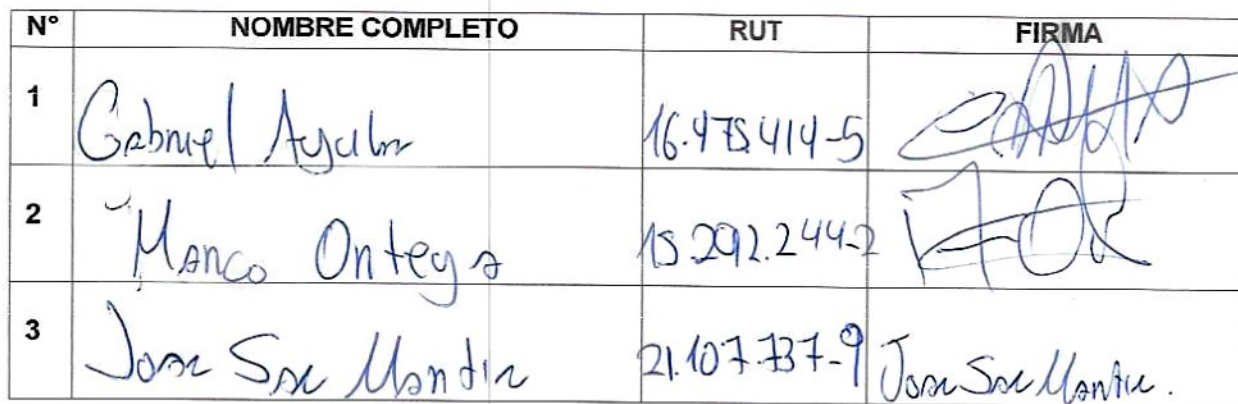 N° NOMBRE COMPLETO RUT FIRMA
1 Gabriel Ayala 16.475.414-5
2 Marco Ortega 15.292.244-2
3 Jose San Martin 21.107.737-9 Jose San Martin.